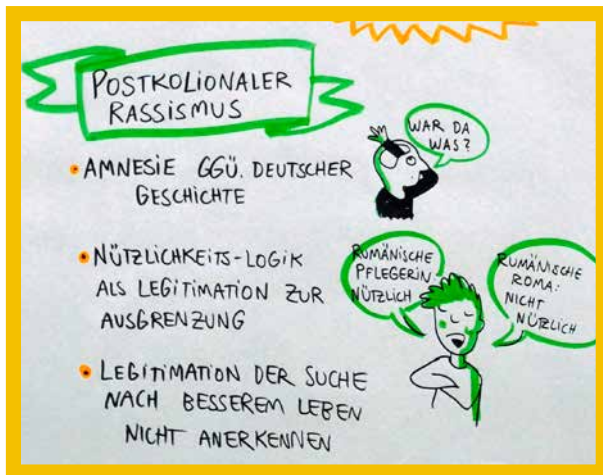 POSTKOLIONALER
RASSISMUS
WAR DA
WAS?
• AMNESIE GGÜ. DEUTSCHER
GESCHICHTE
• NÜTZLICHKEITS-LOGIK
ALS LEGITIMATION ZUR
AUSGRENZUNG
RUMÄNISCHE
PFLEGERIN:
NÜTZLICH
RUMÄNISCHE
ROMA:
NICHT
NÜTZLICH
• LEGITIMATION DER SUCHE
NACH BESSEREM LEBEN
NICHT ANERKENNEN